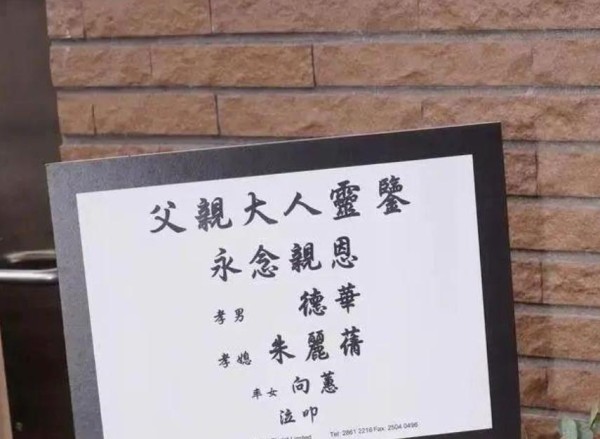 父親大人靈鑒
永念親恩
孝男 德華
孝媳 朱麗蒨
率女 向蕙
泣叩
Limited Tel: 2861 2218 Fax: 2504 0496